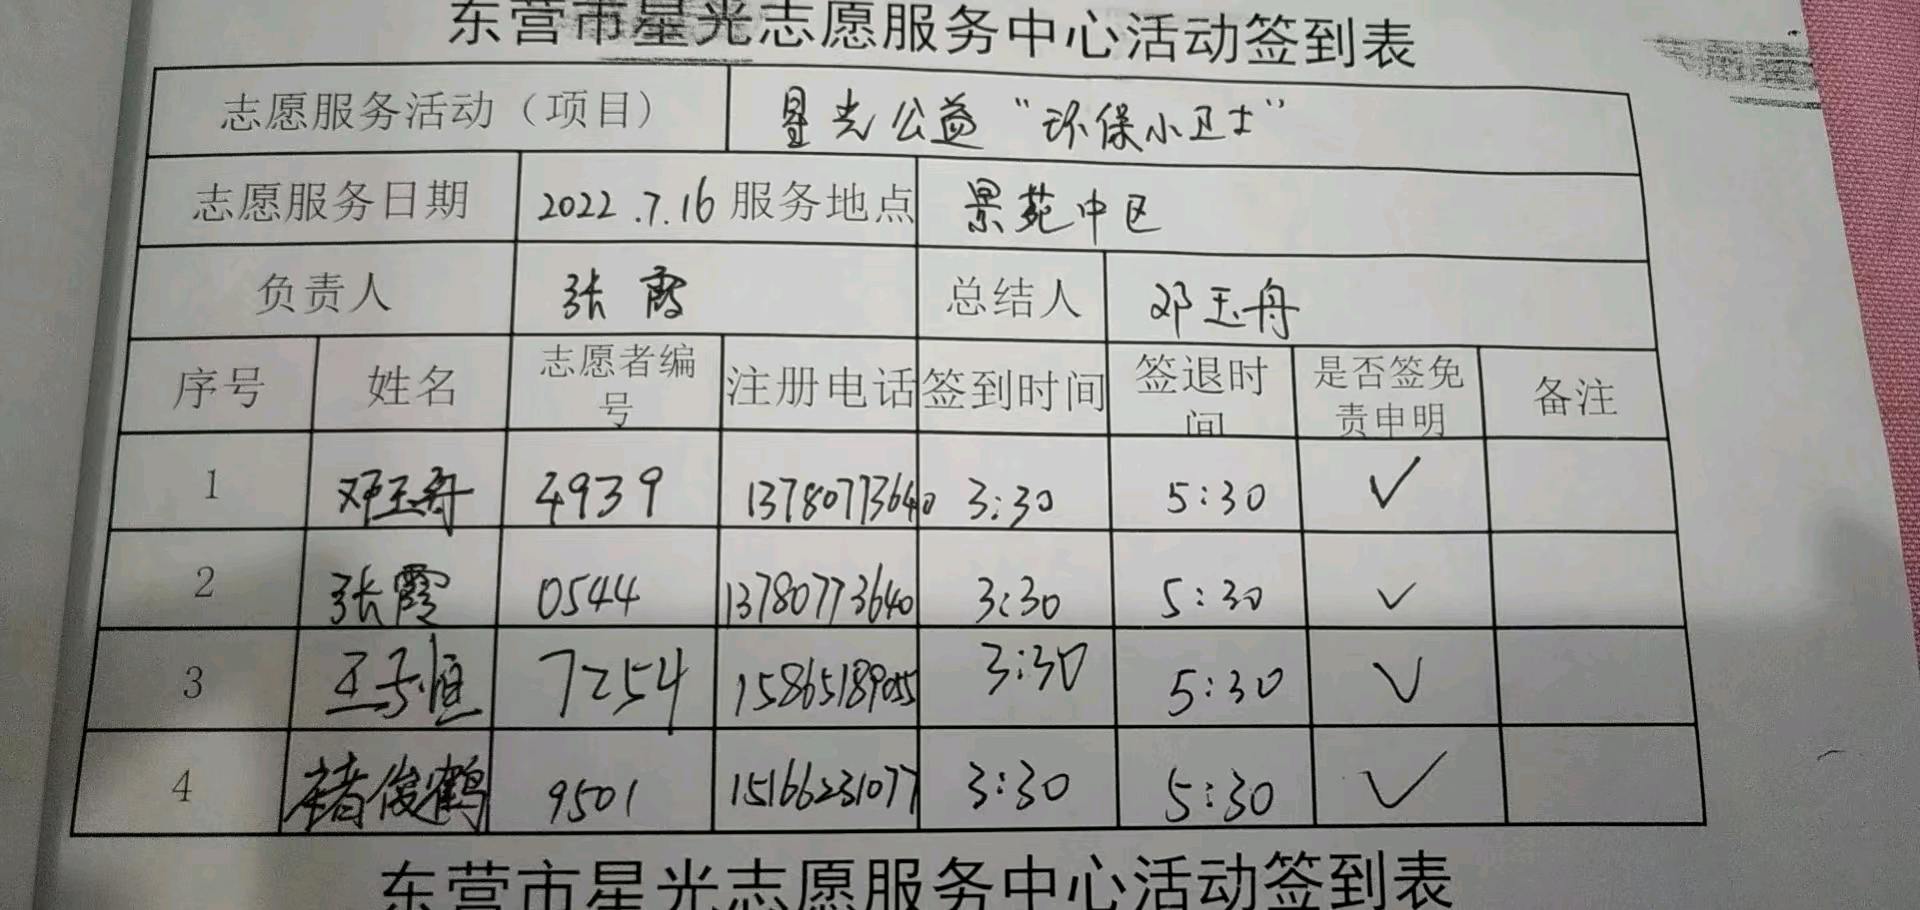 东营市星光志愿服务中心活动签到表
志愿服务活动（项目） 星光公益“环保小卫士”
志愿服务日期 2022.7.16 服务地点 景苑中区
负责人 张霞 总结人 邓玉舟
序号 姓名 志愿者编号 注册电话 签到时间 签退时间 是否签免责申明 备注
1 邓玉舟 4939 13780773640 3:30 5:30 ✓
2 张霞 0544 13780773640 3:30 5:30 ✓
3 王子恒 7254 15865189055 3:30 5:30 ✓
4 褚俊鹤 9501 15166231077 3:30 5:30 ✓
东营市星光志愿服务中心活动签到表